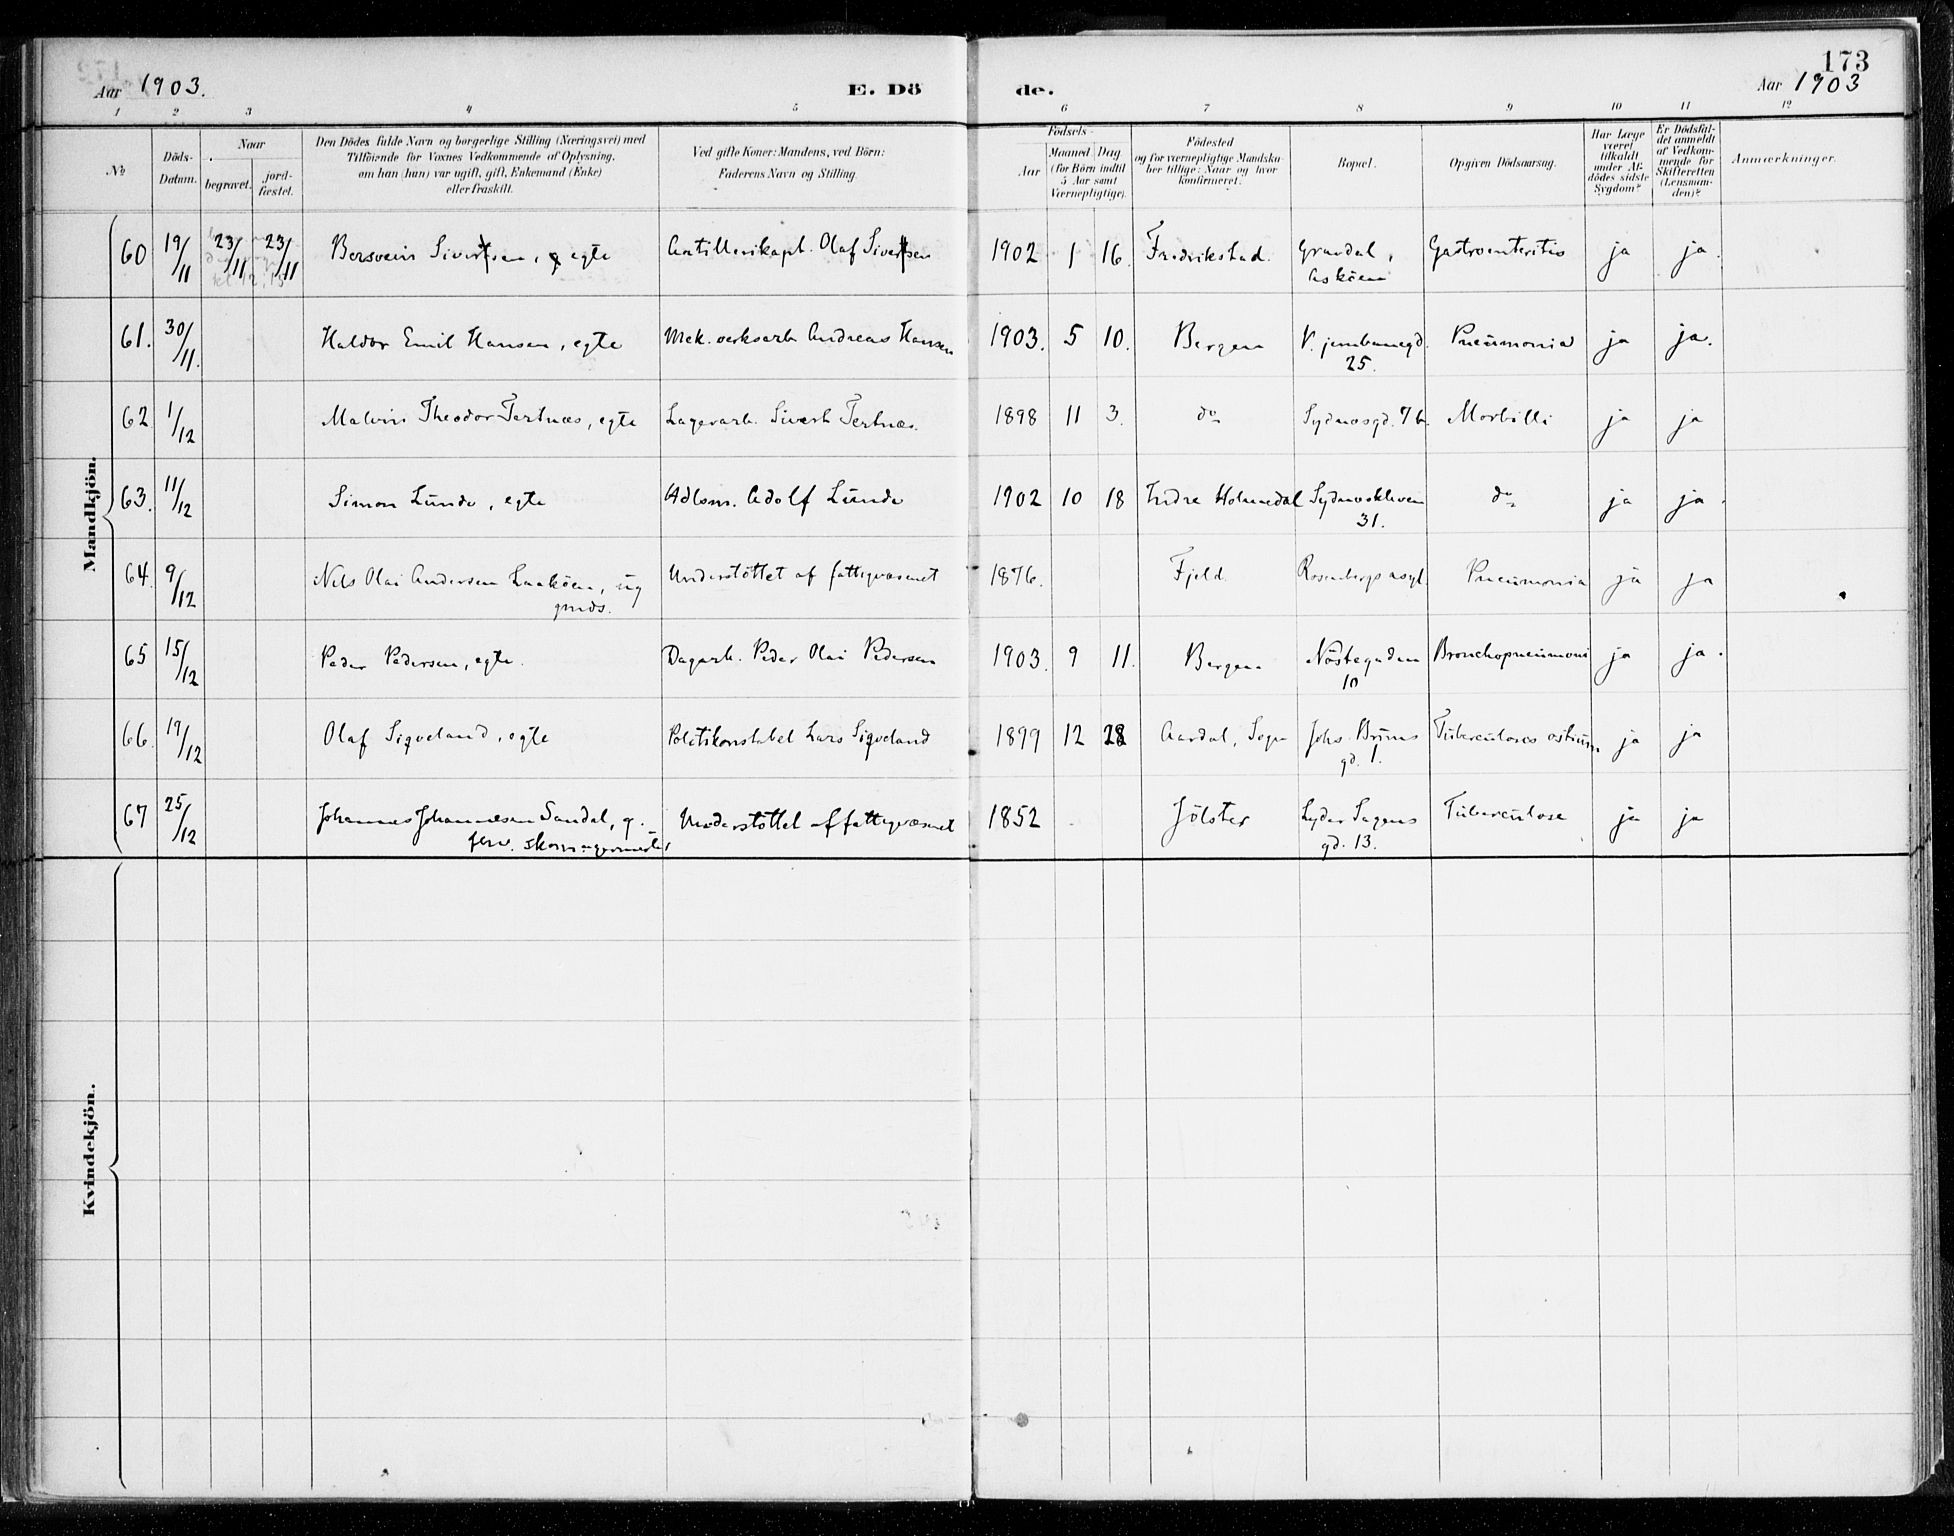 173
Aar 1903.
E. Dö
de.
Aar 1903
1 2 3 4 5 6 7 8 9 10 11 12
No
Döds-Datum.
Naar
begravet.
jord-fæstet.
Den Dödes fulde Navn og borgerlige Stilling (Næringsvei) med
Tilföiende for Voxnes Vedkommende af Oplysning,
om han (hun) var ugift, gift, Enkemand (Enke)
eller fraskilt.
Ved gifte Koner: Mandens, ved Börn:
Faderens Navn og Stilling.
Födsels-
Aar
Maaned Dag
(for Börn indtil
5 Aar samt
Værnepligtige).
Födested
og for værnepligtige Mandska-
ber tillige: Naar og hvor
konfirmeret.
Bopæl.
Opgiven Dödsaarsag.
Har Læge
været
tilkaldt
under Af-
dödes sidste
Sygdom?
Er Dödsfal-
det anmeldt
af Vedkom-
mende for
Skifteretten
(Lensman-
den)?
Anmærkninger.
Mandkjön.
60 19/11 23/11 23/11 Bersvein Sivertsen, egte Artillerikapt. Olaf Sivertsen 1902 1 16. Fredrikstad. Gravdal, Gastroenteritis ja ja.
Asköen
61. 30/11. Haldor Emil Hansen, egte Mek. verksarb Andreas Hansen 1903. 5 10. Bergen V. jernbanegd. Pneumonia ja ja.
25.
62. 1/12 Malvin Theodor Tertnæs, egte Lagerarb. Sivert Tertnæs. 1898 11 3. do Sydnæsgd. 7b. Morbilli ja ja
63. 11/12 Simon Lunde, egte Adolf Lunde 1902 10 18 Indre Holmedal Sydneskleven do ja ja.
31.
64. 9/12 Nils Olai Andersen Laaköen, ug Understöttet af fattigvæsenet 1876. Fjeld. Rosenbergs asyl. Pneumonia ja ja
65 15/12 Peder Pedersen, egte. Dagarb. Peder Olai Pedersen 1903. 9 11. Bergen Nöstegaden Bronchopneumoni ja ja.
10
66. 19/12 Olaf Sigveland, egte Politikonstabel Lars Sigveland 1899 12 28 Aardal, Sogn Johs. Bruns Tuberculosis ja ja
gd. 1.
67 25/12 Johannes Johannesen Sandal, g. Understöttet af fattigvæsenet 1852 Jölster Lyder Sagens Tuberculose ja ja
gd. 13.
Kvindekjön.